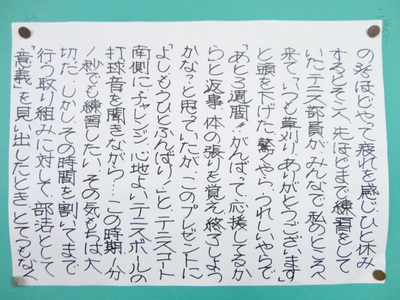 ほどやって疲れを感じ、ひと休み
するとそこへ、先ほどまで練習をして
いたテニス部員が、みんなで私のところへ
来て、「いつも草刈りありがとうございます」
と頭を下げた。驚くやら、うれしいやらで
「あと3週間!がんばって、応援しるか
らと返事。体の張りを覚え、終ろしよう
かな?と思っていたが、このプレゼントに
「よし、もうひとふんばり!」と、テニスコート
南側にチャレンジ。心地よいテニスボールの
打球音を聞きながら…。この時期、1分
1秒でも練習したい。その気もちは大
切だ。しかし、その時間を割いてまで
行う取り組みに対して、部活として
「意義」を見い出したとき、とてつもなく